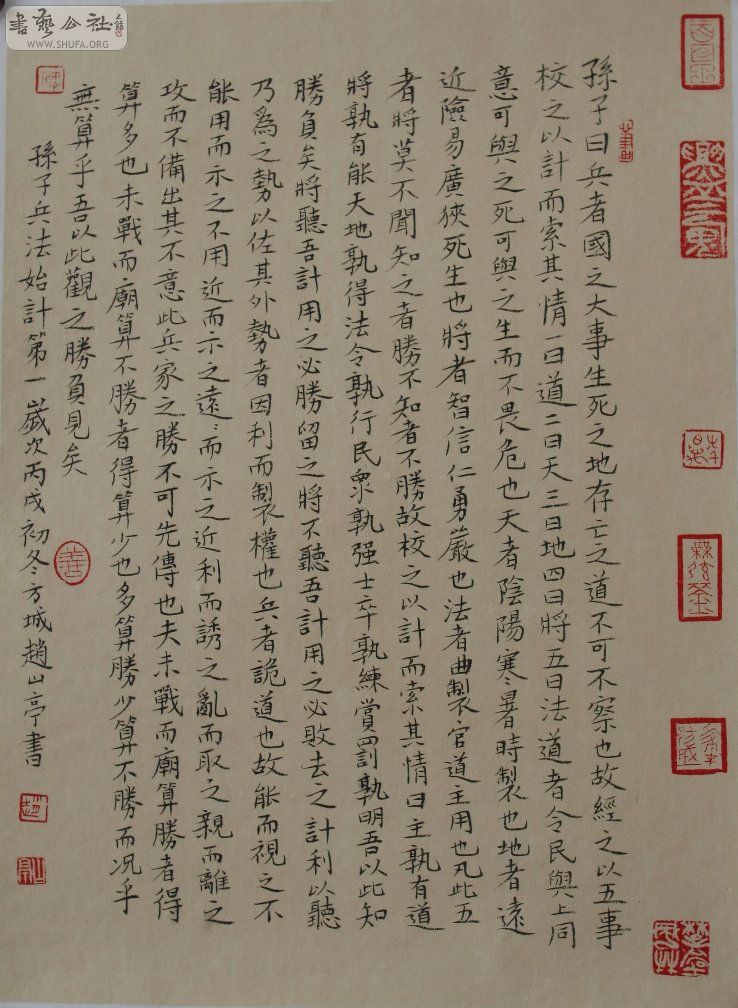 書藝公社
WWW.SHUFA.ORG
孫子曰兵者國之大事生死之地存亡之道不可不察也故經之以五事
校之以計而索其情一曰道二曰天三曰地四曰將五曰法道者令民與上同
意可與之死可與之生而不畏危也天者陰陽寒暑時製也地者遠
近險易廣狹死生也將者智信仁勇嚴也法者曲製官道主用也凡此五
者將莫不聞知之者勝不知者不勝故校之以計而索其情曰主孰有道
將孰有能天地孰得法令孰行民眾孰强士卒孰練賞罰孰明吾以此知
勝負矣將聽吾計用之必勝留之將不聽吾計用之必敗去之計利以聽
乃爲之勢以佐其外勢者因利而製權也兵者詭道也故能而視之不
能用而示之不用近而示之遠〻而示之近利而誘之亂而取之親而離之
攻而不備出其不意此兵家之勝不可先傳也夫未戰而廟算勝者得
算多也未戰而廟算不勝者得算少也多算勝少算不勝而况乎
無算乎吾以此觀之勝負見矣
孫子兵法始計第一歲次丙戌初冬方城趙山亭書
善
趙